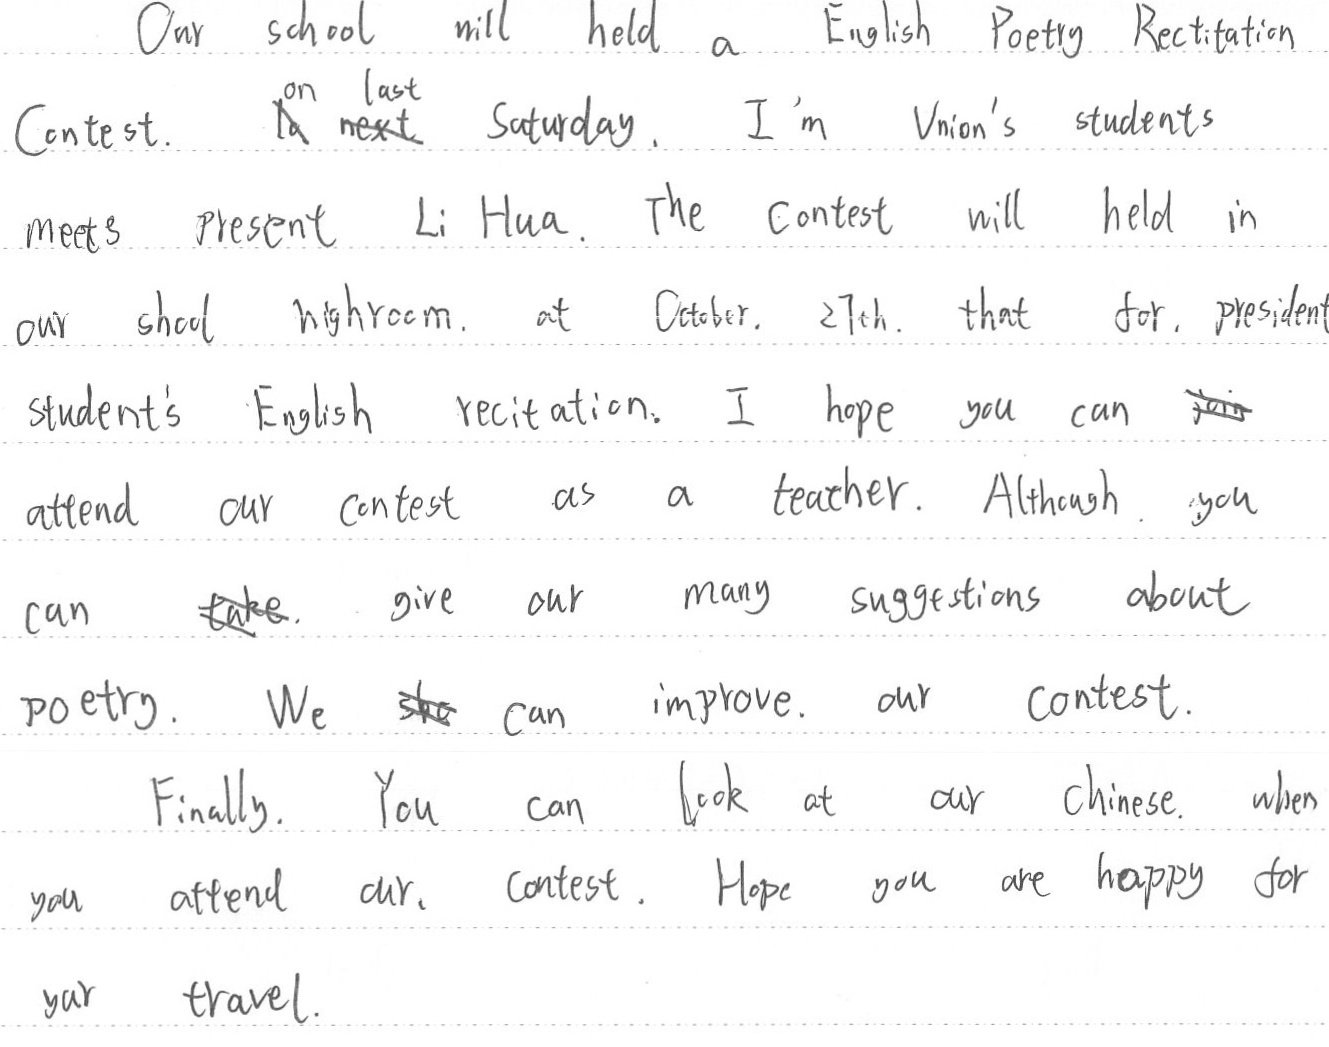 Our school will held a English Poetry Rectitation
Contest. on last Saturday. I'm Vnion's students
meets present Li Hua. The contest will held in
our shool highroom. at October. 27th. that for. president
student's English recitation. I hope you can
attend our contest as a teacher. Although. you
can give our many suggestions about
poetry. We can improve. our contest.
Finally. You can look at our chinese. when
you attend our. contest. Hope you are happy for
yur travel.